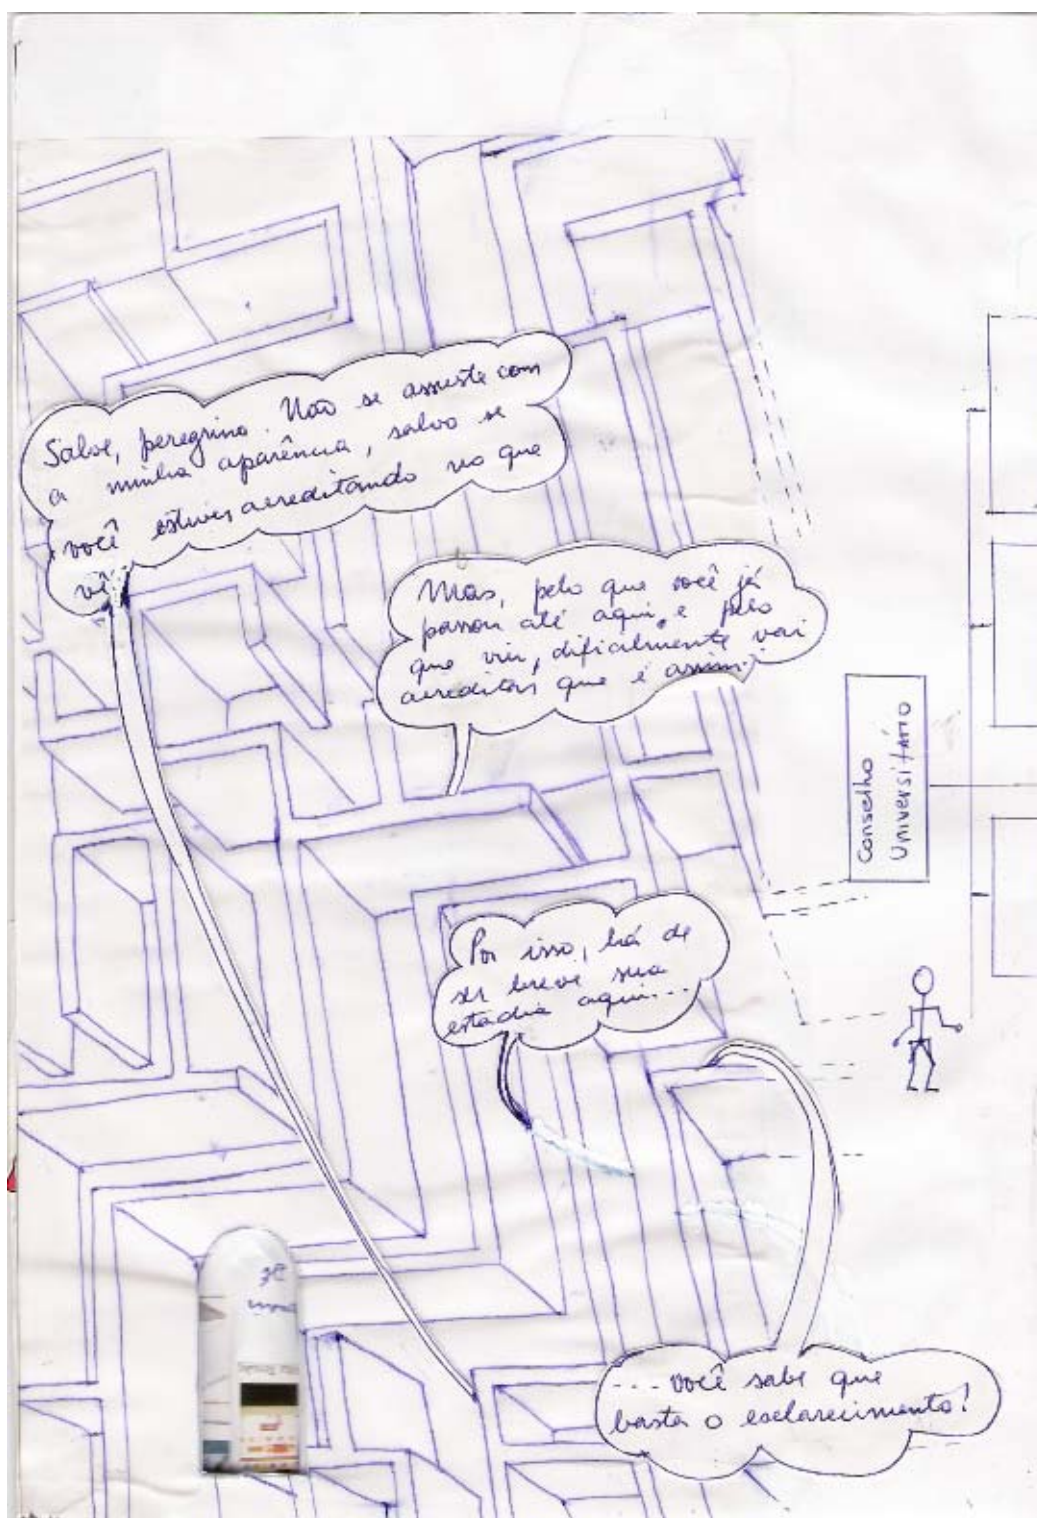 Salve, peregrino. Não se assuste com
a minha aparência, salvo se
você estiver acreditando no que
vê...
Mas, pelo que você já
passou até aqui, e pelo
que viu, dificilmente vai
acreditar que é assim...
Por isso, há de
ser breve sua
estadia aqui...
Conselho
Universitário
...você sabe que
basta o esclarecimento!